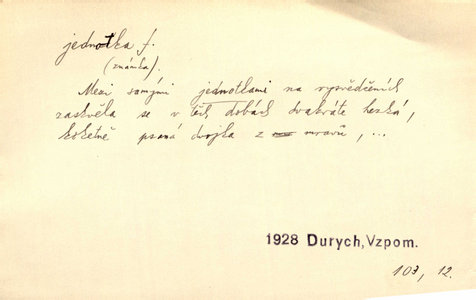 jednotka f.
(známka).
Mezi samými jednotkami na vysvědčeních
zaskvěla se v těch dobách dvakráte hezká,
koketně psaná dvojka z mravů, ...
1928 Durych, Vzpom.
103, 12.